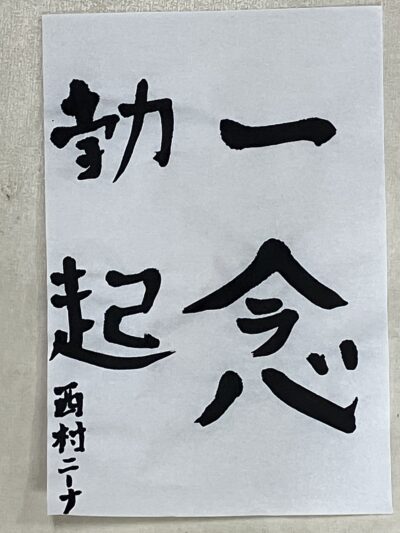 一念
勃起
西村ニーナ